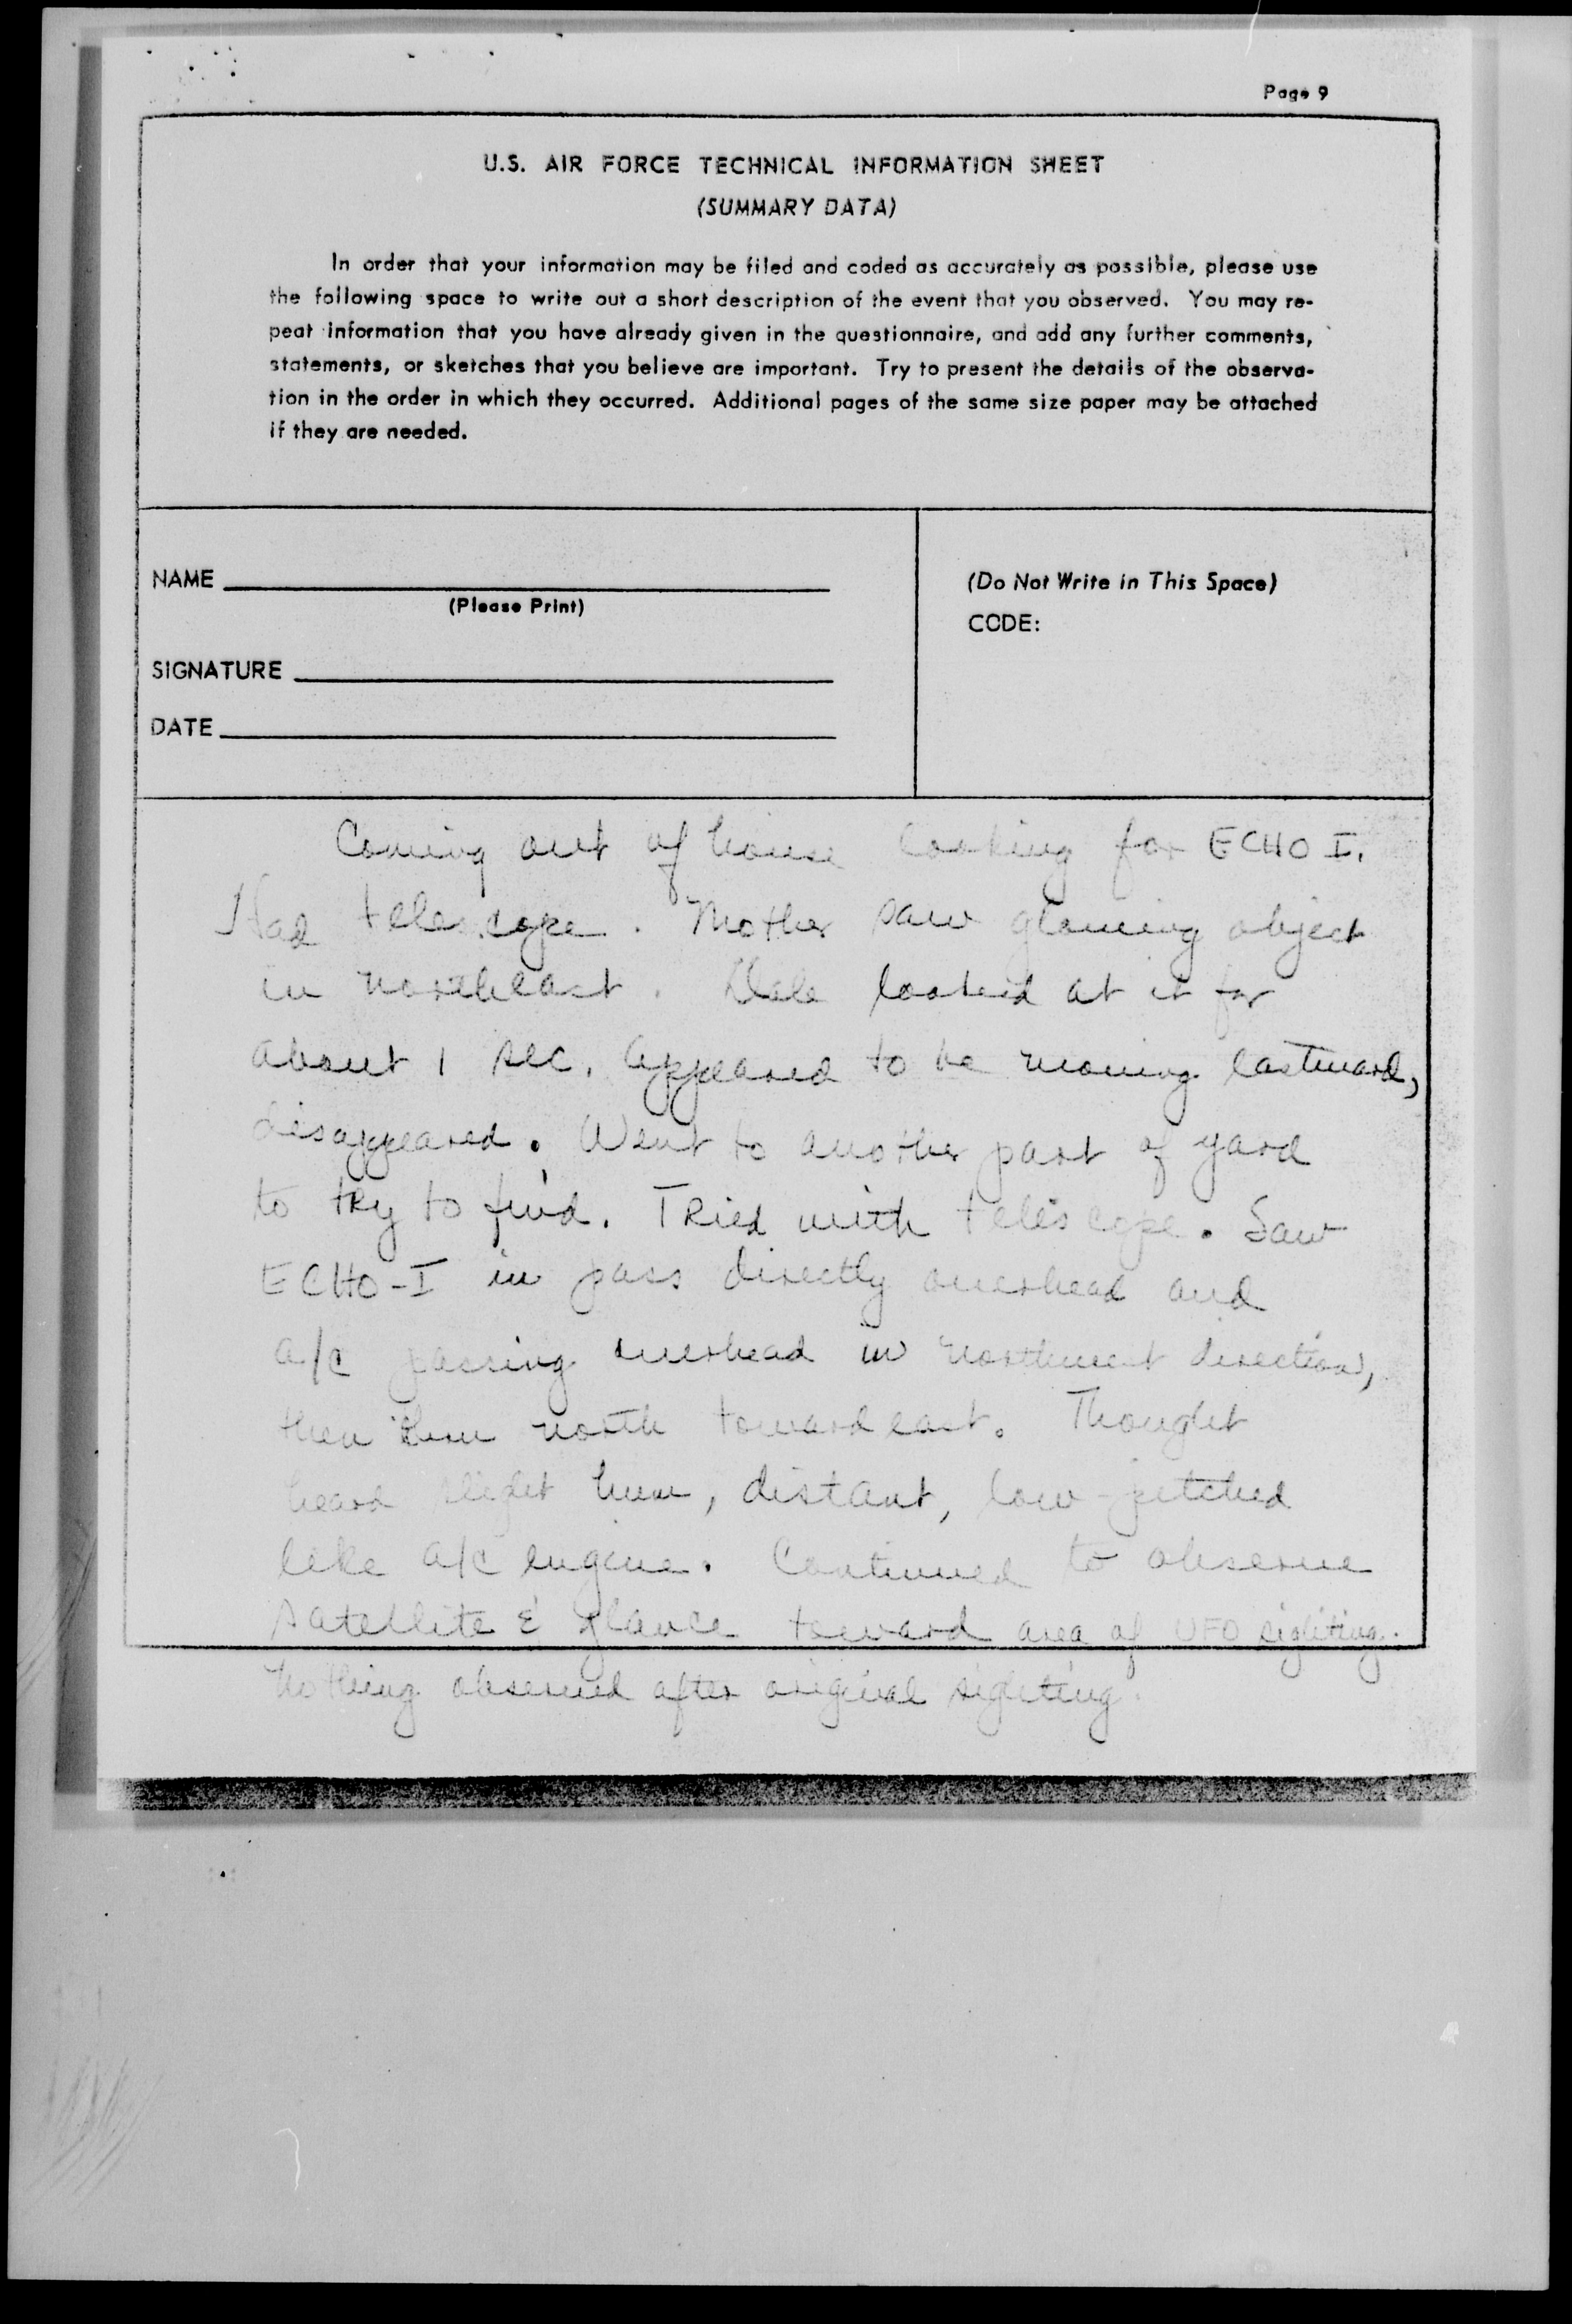 Page 9
U.S. AIR FORCE TECHNICAL INFORMATION SHEET
(SUMMARY DATA)
In order that your information may be filed and coded as accurately as possible, please use
the following space to write out a short description of the event that you observed. You may re-
peat information that you have already given in the questionnaire, and add any further comments,
statements, or sketches that you believe are important. Try to present the details of the observa-
tion in the order in which they occurred. Additional pages of the same size paper may be attached
if they are needed.
NAME
(Please Print)
SIGNATURE
DATE
(Do Not Write in This Space)
CODE:
Coming out of house looking for ECHO I.
Had telescope. Mother saw glowing object
in northeast. Dale looked at it for
about 1 sec. Appeared to be moving eastward,
disappeared. Went to another part of yard
to try to find. Tried with telescope. Saw
ECHO-I in pass directly overhead and
a/c passing overhead in northwest direction,
then north toward east. Thought
heard slight hum, distant, low-pitched
like a/c engine. Continued to observe
satellite & glance toward area of UFO sighting.
Nothing observed after original sighting.